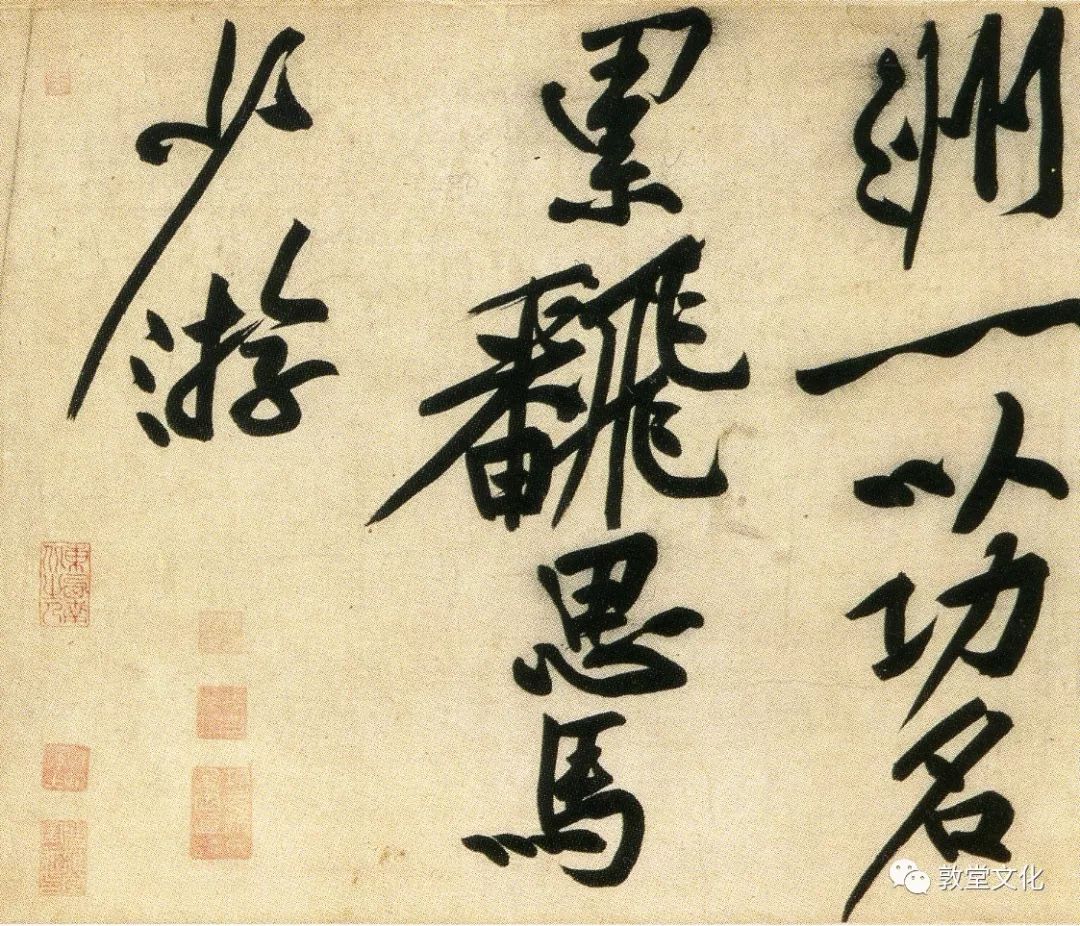 洲一以功名
累飜思馬
少游
敦堂文化